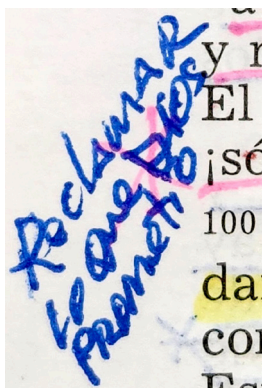 Reclamar
lo que Dios
prometió
y
El
¡só
100
dar
con